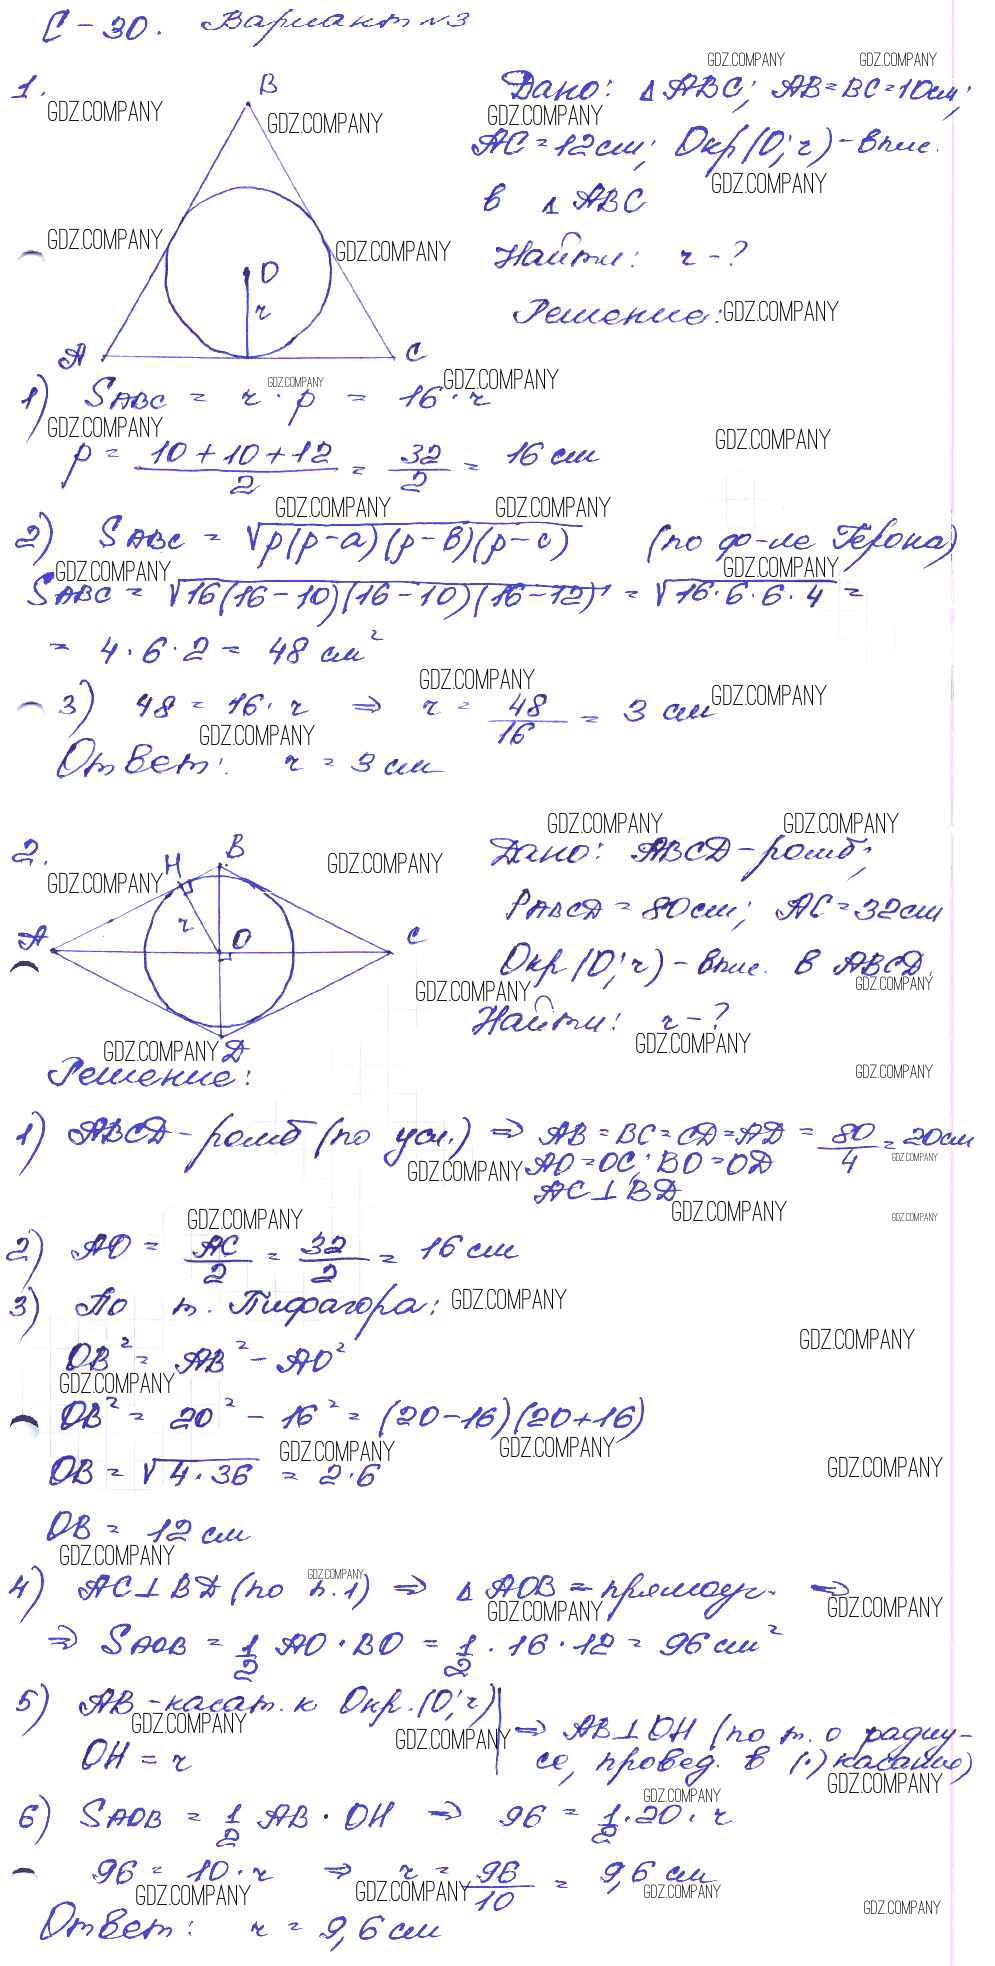 С-30. Вариант №3
1.
B
O
r
A
C
Дано: △ABC; AB=BC=10см;
AC=12см; Окр(O; r)-впис.
в △ABC
Найти: r-?
Решение:
1) SABC = r · p = 16 · r
p = (10+10+12)/2 = 32/2 = 16 см
2) SABC = √p(p-a)(p-b)(p-c) (по ф-ле Герона)
SABC = √16(16-10)(16-10)(16-12) = √16·6·6·4 =
= 4·6·2 = 48 см²
3) 48 = 16·r ⇒ r = 48/16 = 3 см
Ответ: r = 3 см
2.
H
B
r
A
O
C
D
Дано: ABCD-ромб;
PABCD = 80см; AC=32см
Окр(O; r)-впис. в ABCD.
Найти: r-?
Решение:
1) ABCD-ромб (по усл.) ⇒ AB=BC=CD=AD = 80/4 = 20см
AO=OC; BO=OD
AC⊥BD
2) AO = AC/2 = 32/2 = 16 см
3) По т. Пифагора:
OB² = AB² - AO²
OB² = 20² - 16² = (20-16)(20+16)
OB = √4·36 = 2·6
OB = 12 см
4) AC⊥BD (по п.1) ⇒ △AOB = прямоуг. ⇒
⇒ SAOB = 1/2 AO·BO = 1/2 · 16 · 12 = 96 см²
5) AB-касат. к Окр.(O; r)
OH = r
⇒ AB⊥OH (по т. о радиу-
се, провед. в (·) касание)
6) SAOB = 1/2 AB · OH ⇒ 96 = 1/2 · 20 · r
96 = 10 · r ⇒ r = 96/10 = 9,6 см
Ответ: r = 9,6 см
GDZ.COMPANY